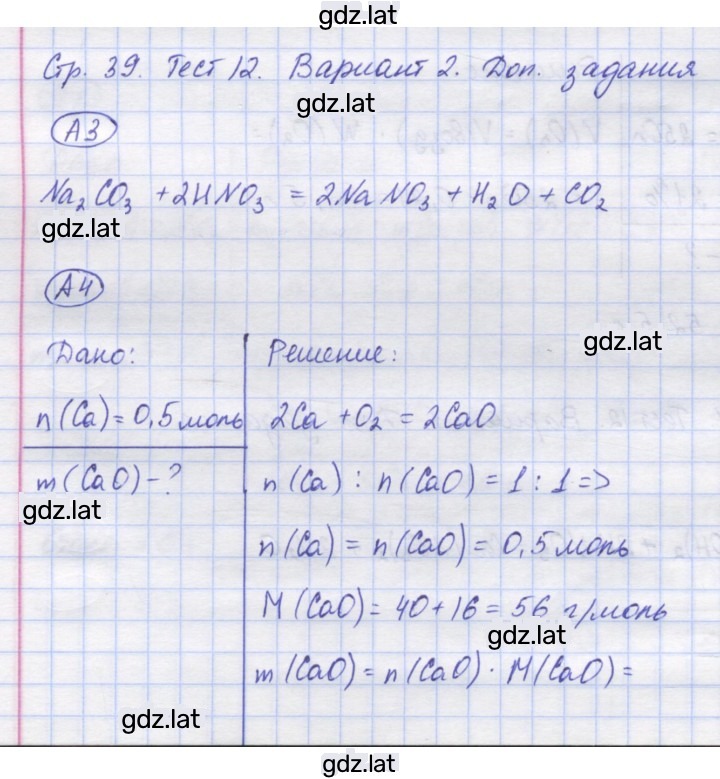 gdz.lat
Стр. 39. Тест 12. Вариант 2. Доп. задания
gdz.lat
А3
Na₂CO₃ + 2HNO₃ = 2NaNO₃ + H₂O + CO₂
gdz.lat
А4
gdz.lat
Дано:
n(Ca) = 0,5 моль
m(CaO) - ?
gdz.lat
Решение:
2Ca + O₂ = 2CaO
n(Ca) : n(CaO) = 1 : 1 =>
n(Ca) = n(CaO) = 0,5 моль
M(CaO) = 40 + 16 = 56 г/моль
gdz.lat
m(CaO) = n(CaO) · M(CaO) =
gdz.lat
gdz.lat